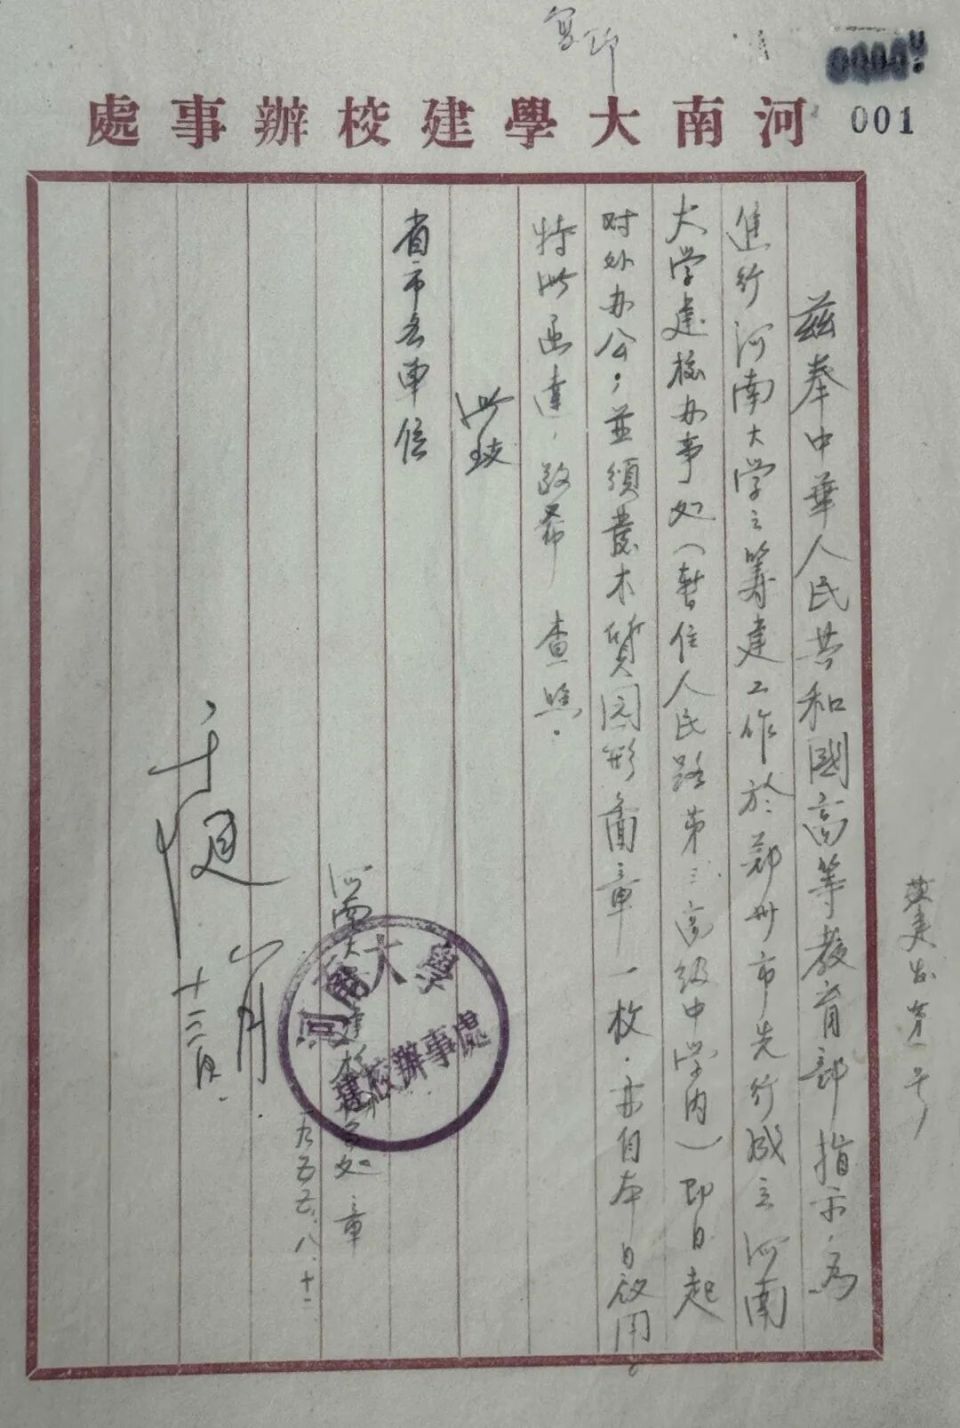 001
河南大學建校辦事處
茲奉中華人民共和國高等教育部指示,為
進行河南大学之籌建工作於郑州市先行成立河南
大学建校办事处(暫住人民路第三高级中学内)即日起
对外办公;並頒發木質园形圖章一枚.亦自本日啟用。
特此函達,敬希 查照.
此致
省市各単位
河南大学建校办事处 章
一九五五.八.十一
十二月
河南大學
建校辦事處